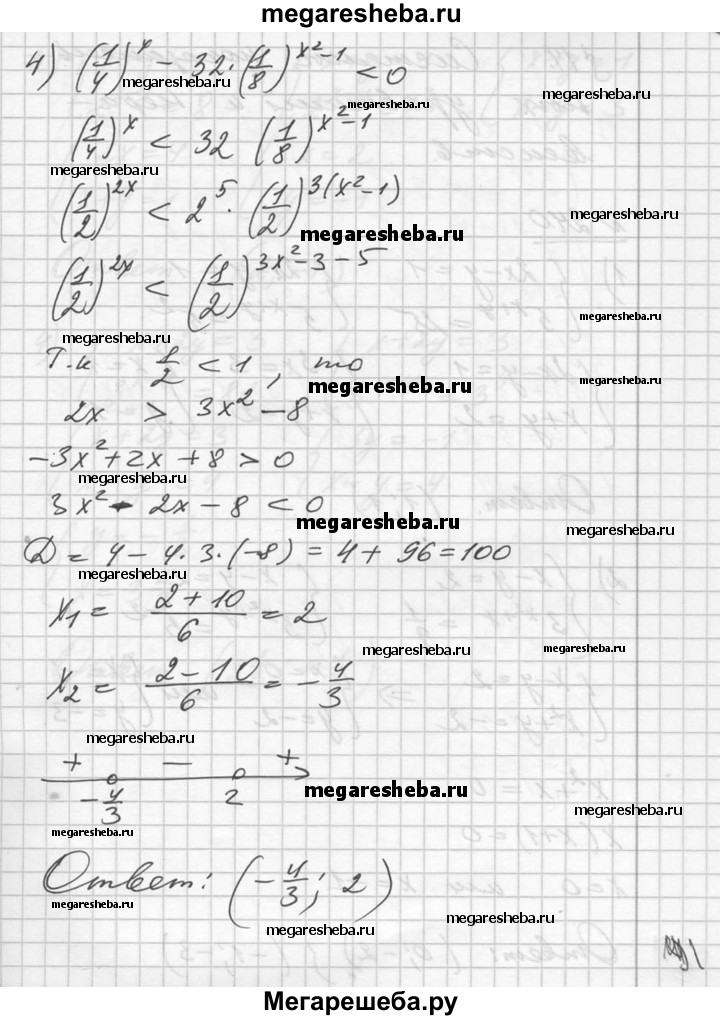 megaresheba.ru
4) (1/4)^x - 32·(1/8)^(x²-1) < 0
megaresheba.ru
megaresheba.ru
megaresheba.ru
(1/4)^x < 32 (1/8)^(x²-1)
megaresheba.ru
(1/2)^2x < 2^5 · (1/2)^3(x²-1)
megaresheba.ru
megaresheba.ru
(1/2)^2x < (1/2)^(3x²-3-5)
megaresheba.ru
megaresheba.ru
Т.к 1/2 < 1, то
megaresheba.ru
megaresheba.ru
2x > 3x² - 8
-3x² + 2x + 8 > 0
megaresheba.ru
3x² - 2x - 8 < 0
megaresheba.ru
D = 4 - 4·3·(-8) = 4 + 96 = 100
megaresheba.ru
megaresheba.ru
x₁ = (2+10)/6 = 2
megaresheba.ru
megaresheba.ru
x₂ = (2-10)/6 = -4/3
megaresheba.ru
+ — +
megaresheba.ru
-4/3 2
megaresheba.ru
megaresheba.ru
Ответ: (-4/3; 2)
megaresheba.ru
megaresheba.ru
Мегарешеба.ру